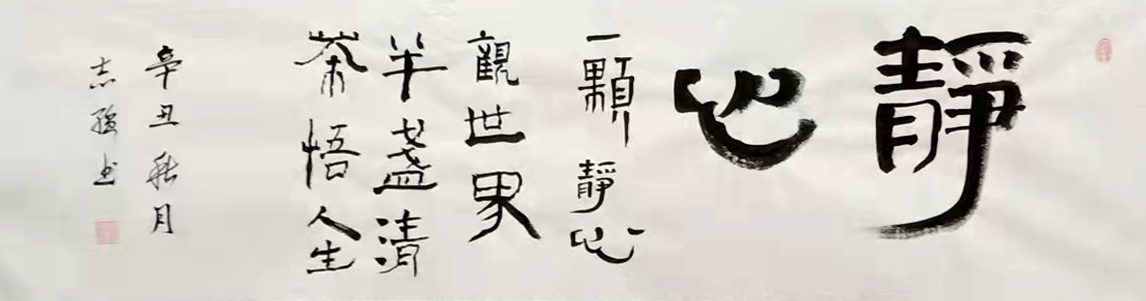 靜心
一顆靜心
觀世界
半盞清
茶悟人生
辛丑秋月
志強书